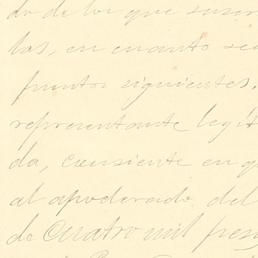 do de los que suscr
las, en cuanto se
puntos siguientes.
representante legít
da, consiente en q
al apoderado del
de Cuatro mil pes